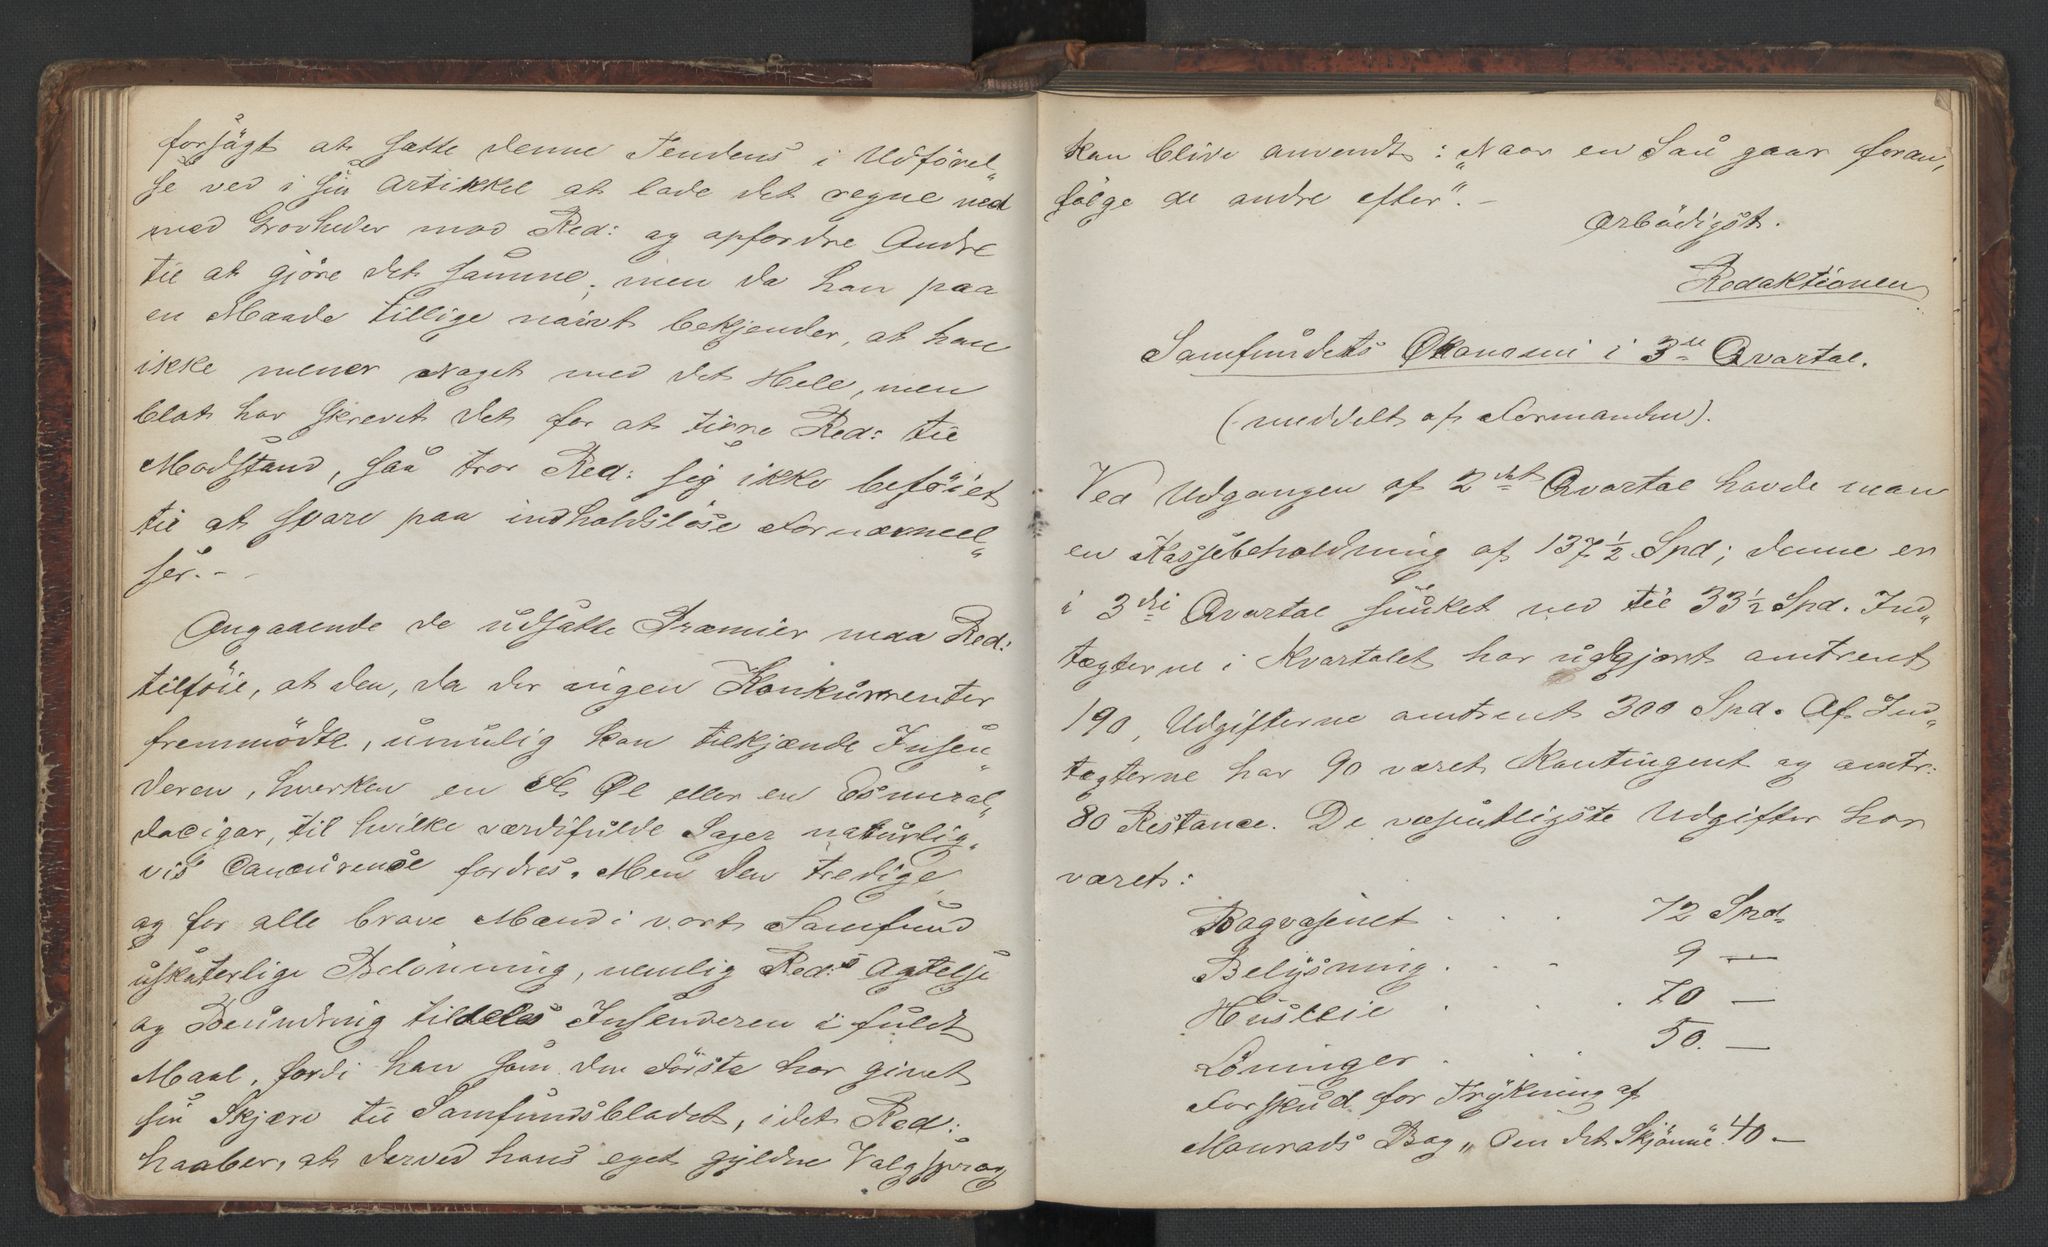 forsögt at sætte denne Tendens i Udförel„
se ved i sin Artikkel at lade det regne ned
med Grovheder mod Red: og opfordre Andre
til at gjöre det samme; men da han paa
en Maade tillige naivt bekjender, at han
ikke mener Noget med det Hele, men
blot har skrevet det for at tirre Red: til
Modstand, saa tror Red: sig ikke beföiet
til at svare paa indholdslöse Fornærmel„
ser. –
Angaaende de udsatte Præmier maa Red:
tilföie, at den, da der ingen Konkurrenter
fremmödte, umulig kan tilkjænde Insen„
deren, hverken en Øl eller en Esmeral„
dacigar, til hvilke værdifulde Sager naturlig„
vis Concurence fordres. Men den tredige
og for alle brave Mænd i vort Samfund
uskaterlige Belönning, nemlig Red:s Agtelse
og Beundring tildeles Insenderen i fuldt
Maal, fordi han som den Förste har givet
sin Skjærv til Samfundsbladet, idet Red:
haaber, at derved hans eget gyldne Valgsprog
kan blive anvendt: „Naar en Sau gaar foran,
fölge de andre efter". –
Ærbödigst.
Redaktionen
Samfundets Økonomi i 3die Qvartal.
(meddelt af Formanden).
Ved Udgangen af 2det Qvartal havde man
en Kassebeholdning af 137½ Spd; denne er
i 3die Qvartal sunket ned til 33½ Spd. Ind„
tægterne i Kvartalet har udgjort omtrent
190, Udgifterne omtrent 300 Spd. Af Ind„
tægterne har 90 været Kontingent og omtr:
80 Restance. De væsentligste Udgifter har
været:
Bogvæsenet . . . 72 Spd.
Belysning . . . 9 —
Husleie . . . 70 —
Lönninger . . . 50. —
Forskud for Trykning af
Monrads Bog „Om det Skjönne" 40 —